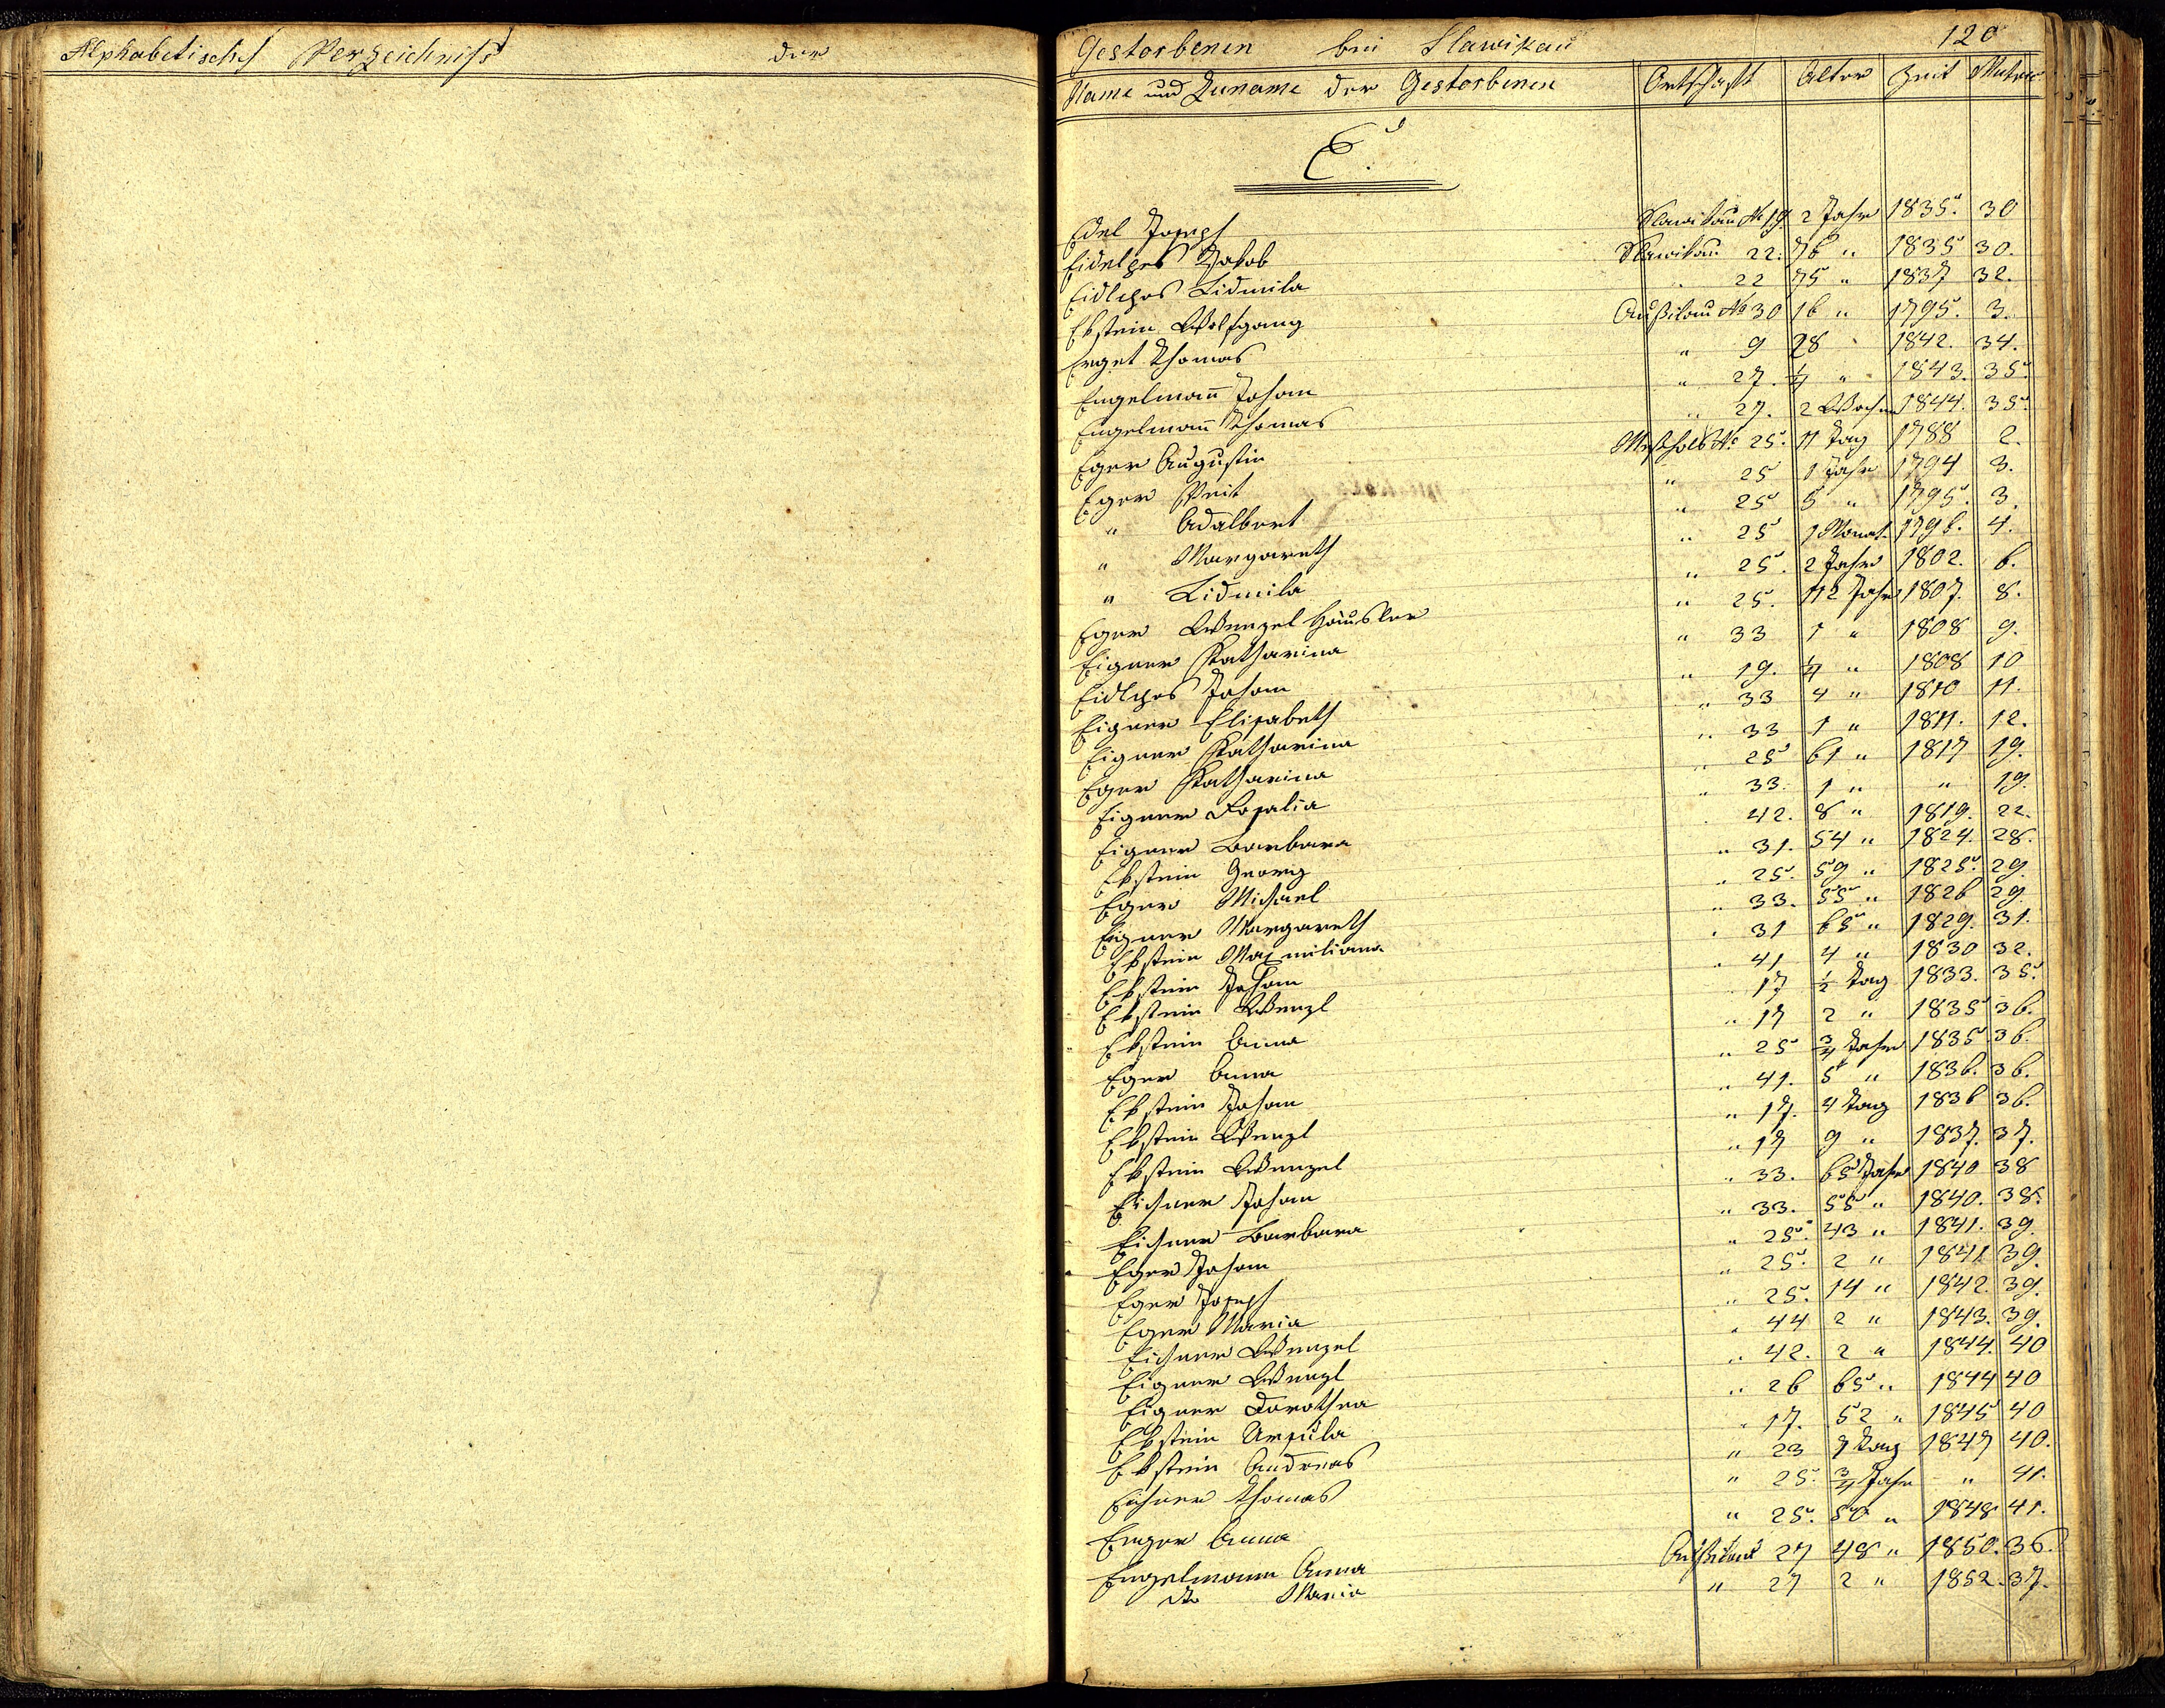 Alphabetisches Verzeichniß der
Gestorbenen bei Slawikau 120
Name und Zuname der Gestorbenen Ortschaft Alter Zeit Matric
E.
Edel Joseph Slawikau No 19 2 Jahr 1835. 30
Eidelpes Jakob Slawikau 22. 76 " 1835 30.
Eidlpes Lidmila " 22 75 " 1837 32.
Ebstein Wolfgang Außilau No 30 16 " 1795. 3.
Erget Thomas " 9 28 " 1842. 34.
Engelmann Johann " 27. 1/4 " 1843. 35.
Engelmann Thomas " 27. 2 Wochen 1844. 35.
Eger Augustin No 25. 11 Tag 1788 2.
Eger Veit " 25 1 Jahr 1794 3.
" Adalbert " 25 5 " 1795. 3.
" Margareth " 25 1 Monat 1796. 4.
" Lidmila " 25. 2 Jahr 1802. 6.
Eger Wenzel Häusler " 25. 112 Jahr 1807. 8.
Eigner Katharina " 33 1 " 1808 9.
Eidlpes Johann " 19. 1/4 " 1808 10
Eigner Elisabeth " 33 4 " 1810 11.
Eigner Katharina " 33 1 " 1811. 12.
Eger Katharina " 25 61 " 1817 19.
Eigner Rosalia " 33. 1 " " 19.
Eigner Barbara " 42. 8 " 1819. 22.
Ebstein Georg " 31. 54 " 1824. 28.
Eger Michael " 25. 59 " 1825. 29.
Eigner Margareth " 33. 55 " 1826 29.
Ebstein Maxmiliana " 31 65 " 1829. 31.
Ebstein Johann " 41 4 " 1830 32.
Ebstein Wenzl " 17 1/2 Tag 1833. 35.
Ebstein Anna " 17 2 " 1835 36.
Eger Anna " 25 3/4 Jahr 1835 36.
Ebstein Johann " 41. 5 " 1836. 36.
Ebstein Wenzl " 17. 4 Tag 1836 36.
Ebstein Wenzel " 17 9 " 1837. 37.
Eichner Johann " 33. 65 Jahr 1840 38
Eichner Barbara " 33. 55 " 1840. 38.
Eger Johann " 25. 43 " 1841. 39.
Eger Joseph " 25. 2 " 1841 39.
Eger Maria " 25. 14 " 1842. 39.
Eichner Wenzel " 44 2 " 1843. 39.
Eigner Wenzl " 42. 2 " 1844. 40
Eigner Dorothea " 26 65 " 1844 40
Ebstein Ursula " 17. 52 " 1845 40
Ebstein Andreas " 23 7 Tag 1847 40.
Eichner Thomas " 25. 3/4 Jahr " 41.
Enger Anna " 25. 50 " 1848 41.
Engelmann Anna Außilau 27 48 " 1850. 36.
dto Maria " 27 2 " 1852. 37.